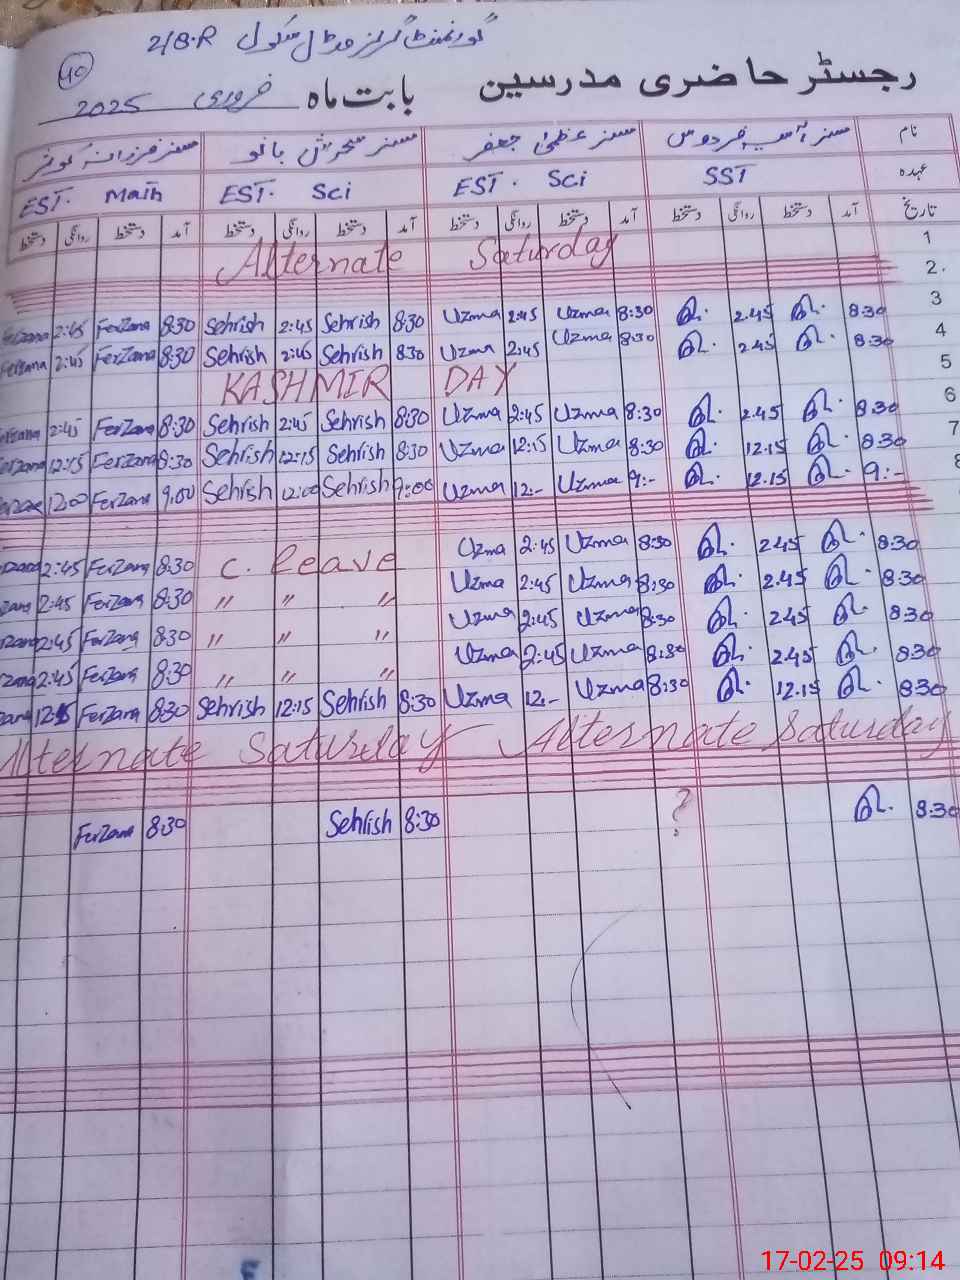 گورنمنٹ گرلز مڈل سکول 2/B.R
40
رجسٹر حاضری مدرسین بابت ماہ فروری 2025
نام مسز آسیہ فردوس مسز عظمیٰ جعفر مسز سحرش بانو مسز فرزانہ کوثر
عہدہ SST EST. Sci EST. Sci EST. Math
تاریخ آمد دستخط روانگی دستخط آمد دستخط روانگی دستخط آمد دستخط روانگی دستخط آمد دستخط روانگی دستخط
1 Alternate Saturday
2.
Ferzana 2:45 FerZana 8:30 Sehrish 2:45 Sehrish 8:30 Uzma 2:45 Uzma 8:30 2.45 8:30 3
Ferzana 2:45 FerZana 8:30 Sehrish 2:45 Sehrish 8:30 Uzma 2:45 Uzma 8:30 2.45 8:30 4
KASHMIR DAY 5
Ferzana 2:45 FerZana 8:30 Sehrish 2:45 Sehrish 8:30 Uzma 2:45 Uzma 8:30 2.45 8:30 6
Ferzana 12:15 FerZana 8:30 Sehrish 12:15 Sehrish 8:30 Uzma 12:15 Uzma 8:30 12.15 8:30 7
12:00 FerZana 9:00 Sehrish 12:00 Sehrish 9:00 Uzma 12:- Uzma 9:- 12.15 9:- 8
2:45 FerZana 8:30 C. leave Uzma 2:45 Uzma 8:30 2.45 8:30
2:45 FerZana 8:30 " " " Uzma 2:45 Uzma 8:30 2.45 8:30
2:45 FerZana 8:30 " " " Uzma 2:45 Uzma 8:30 2.45 8:30
2:45 FerZana 8:30 " " " Uzma 2:45 Uzma 8:30 2.45 8:30
12:15 FerZana 8:30 Sehrish 12:15 Sehrish 8:30 Uzma 12:- Uzma 8:30 12.15 8:30
Alternate Saturday Alternate Saturday
FerZana 8:30 Sehrish 8:30 ? 8:30
17-02-25 09:14